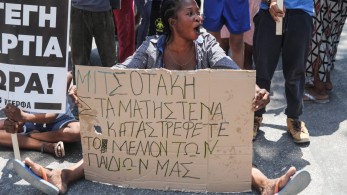 ΤΕΓΗ
ΑΡΤΙΑ
ΩΡΑ!
ΚΕΕΡΦΑ
ΜΙΤΣΟΤΑΚΗ
ΣΤΑΜΑΤΗΣΤΕ ΝΑ
ΚΑΤΑΣΤΡΕΦΕΤΕ
ΤΟ ΜΕΛΛΟΝ ΤΩΝ
ΠΑΙΔΙΩΝ ΜΑΣ